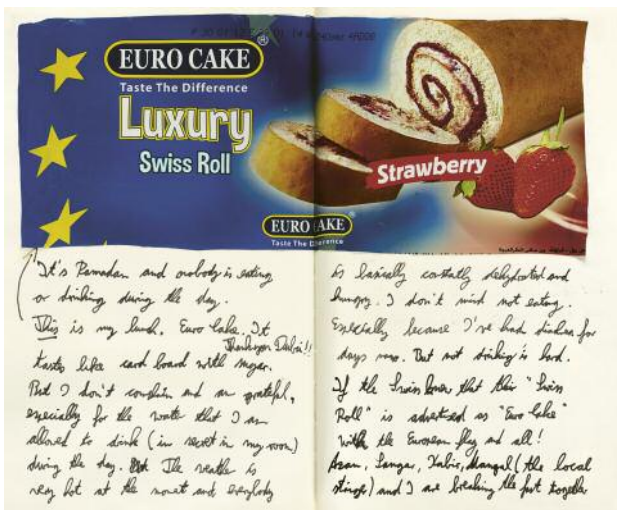 EURO CAKE
®
Taste The Difference
Luxury
Swiss Roll
Strawberry
EURO CAKE
Taste The Difference
It's Ramadan and nobody is eating
or drinking during the day.
This is my lunch. Euro Cake. It
Thankyou Dubai!!
tastes like card board with sugar.
But I don't complain and am grateful,
especially for the water that I am
allowed to drink (in secret in my room)
during the day. The weather is
very hot at the moment and everybody
is basically constantly dehydrated and
hungry. I don't mind not eating.
Especially because I've had diarhea for
days now. But not drinking is hard.
If the Swiss knew that their "Swiss
Roll" is advertised as "Euro Cake"
with the European flag and all!
Asam, Sangar, Kabir, Mangal (the local
) and I are breaking the fast together